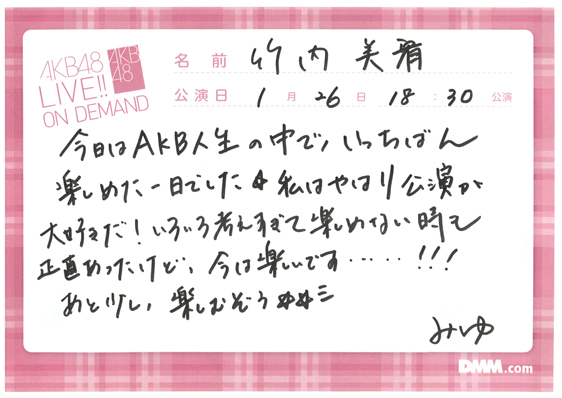 AKB48
LIVE!!
ON DEMAND
AKB
48
名前 竹内美宥
公演日 1月26日 18:30公演
今日はAKB人生の中で、いっちばん
楽しめた一日でした☆私はやはり公演が
大好きだ!いろいろ考えすぎて楽しめない時も
正直あったけど、今は楽しいです‥‥‥!!!
あと少し、楽しむぞう☆☆三
みゆ
DMM.com